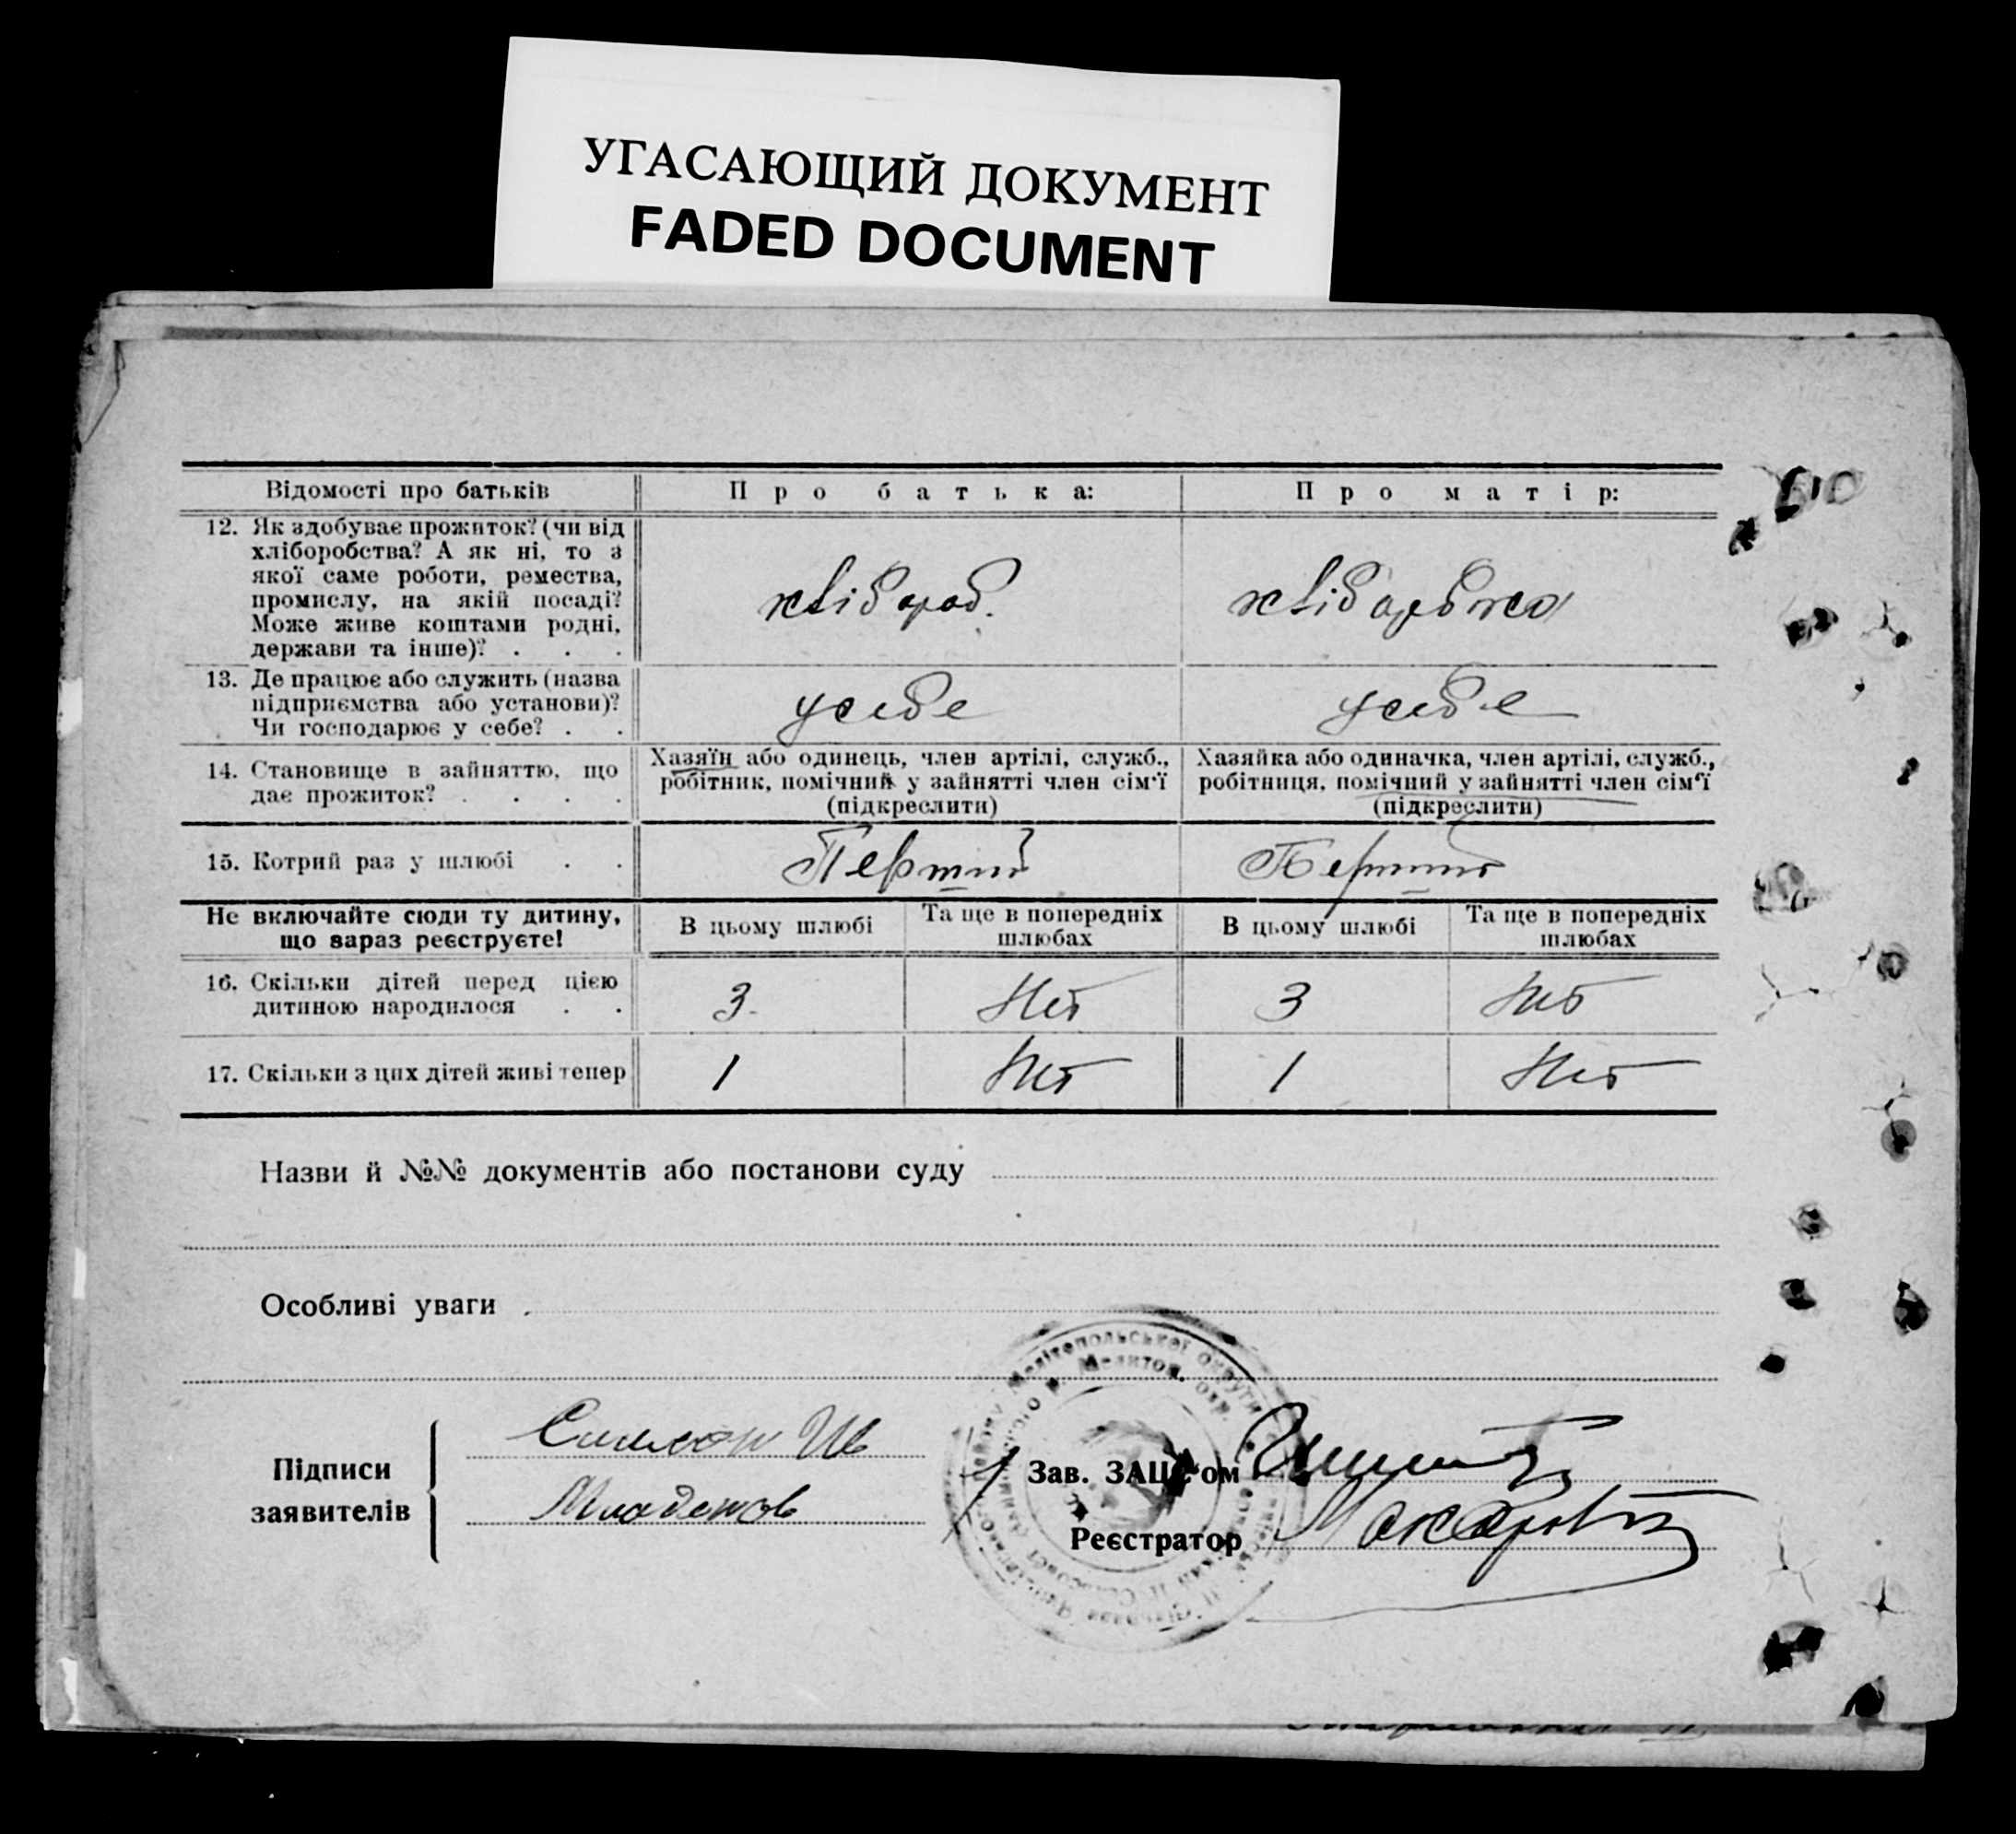 УГАСАЮЩИЙ ДОКУМЕНТ
FADED DOCUMENT
Відомості про батьків
Про батька:
Про матір:
12. Як здобуває прожиток? (чи від
хліборобства? А як ні, то з
якої саме роботи, ремества,
промислу, на якій посаді?
Може живе коштами родні,
держави та інше)? . . .
хлібороб.
хліборобка
13. Де працює або служить (назва
підприємства або установи)?
Чи господарює у себе? . .
у себе
у себе
14. Становище в зайняттю, що
дає прожиток? . . . .
Хазяїн або одинець, член артілі, служб.,
робітник, помічний у зайнятті член сім'ї
(підкреслити)
Хазяйка або одиначка, член артілі, служб.,
робітниця, помічний у зайнятті член сім'ї
(підкреслити)
15. Котрий раз у шлюбі . .
Перший
Не включайте сюди ту дитину,
що зараз реєструєте!
В цьому шлюбі
Та ще в попередніх
шлюбах
В цьому шлюбі
Та ще в попередніх
шлюбах
16. Скільки дітей перед цією
дитиною народилося . .
3
Нет
3
Нет
17. Скільки з цих дітей живі тепер
1
Нет
1
Нет
Назви й №№ документів або постанови суду
Особливі уваги
Підписи
заявителів
Младенов
Мелітопольської округи
Зав. ЗАЦС'ом
Реєстратор